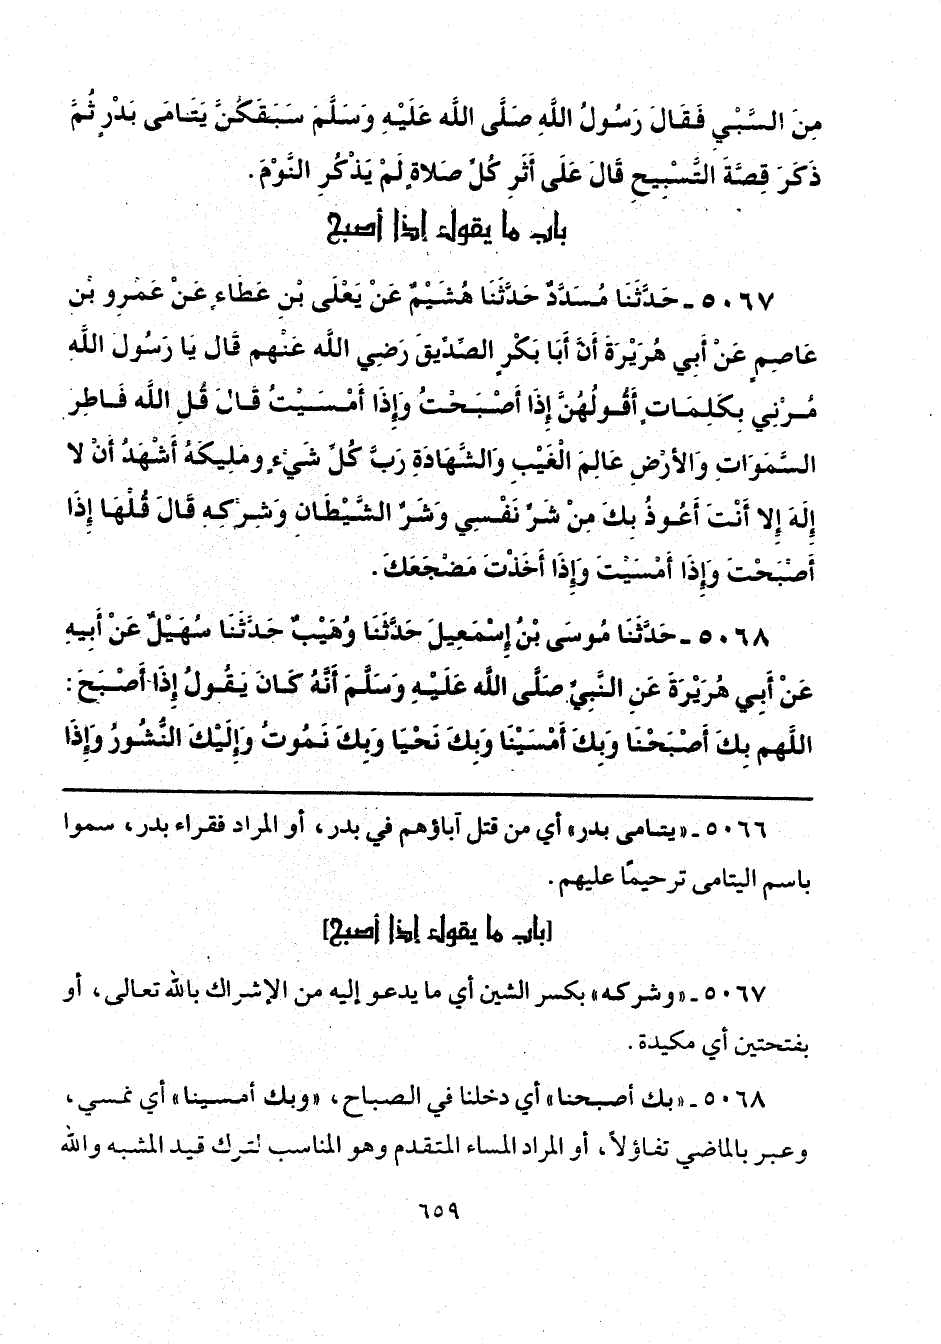 مِنَ السَّبْيِ فَقَالَ رَسُولُ اللَّهِ صَلَّى اللَّه عَلَيْهِ وَسَلَّمَ سَبَقَكُنَّ يَتَامَى بَدْرٍ ثُمَّ
ذَكَرَ قِصَّةَ التَّسْبِيحِ قَالَ عَلَى أَثَرِ كُلِّ صَلاةٍ لَمْ يَذْكُرِ النَّوْمَ.
باب ما يقول إذا أصبح
٥٠٦٧ ـ حَدَّثَنَا مُسَدَّدٌ حَدَّثَنَا هُشَيْمٌ عَنْ يَعْلَى بْنِ عَطَاءٍ عَنْ عَمْرِو بْنِ
عَاصِمٍ عَنْ أَبِي هُرَيْرَةَ أَنَّ أَبَا بَكْرٍ الصِّدِّيقَ رَضِي اللَّه عَنْهم قَال يَا رَسُولَ اللَّهِ
مُرْنِي بِكَلِمَاتٍ أَقُولُهُنَّ إِذَا أَصْبَحْتُ وَإِذَا أَمْسَيْتُ قَالَ قُلِ اللَّه فَاطِرَ
السَّمَوَاتِ وَالأَرْضِ عَالِمَ الْغَيْبِ وَالشَّهَادَةِ رَبَّ كُلِّ شَيْءٍ وَمَلِيكَهُ أَشْهَدُ أَنْ لا
إِلَهَ إِلا أَنْتَ أَعُوذُ بِكَ مِنْ شَرِّ نَفْسِي وَشَرِّ الشَّيْطَانِ وَشِرْكِهِ قَالَ قُلْهَا إِذَا
أَصْبَحْتَ وَإِذَا أَمْسَيْتَ وَإِذَا أَخَذْتَ مَضْجَعَكَ.
٥٠٦٨ ـ حَدَّثَنَا مُوسَى بْنُ إِسْمَعِيلَ حَدَّثَنَا وُهَيْبٌ حَدَّثَنَا سُهَيْلٌ عَنْ أَبِيهِ
عَنْ أَبِي هُرَيْرَةَ عَنِ النَّبِيِّ صَلَّى اللَّه عَلَيْهِ وَسَلَّمَ أَنَّهُ كَانَ يَقُولُ إِذَا أَصْبَحَ:
اللَّهم بِكَ أَصْبَحْنَا وَبِكَ أَمْسَيْنَا وَبِكَ نَحْيَا وَبِكَ نَمُوتُ وَإِلَيْكَ النُّشُورُ وَإِذَا
٥٠٦٦ ـ «يتامى بدر» أي من قتل آباؤهم في بدر، أو المراد فقراء بدر، سموا
باسم اليتامى ترحيمًا عليهم.
[باب ما يقول إذا أصبح]
٥٠٦٧ ـ «وشركه» بكسر الشين أي ما يدعو إليه من الإشراك بالله تعالى، أو
بفتحتين أي مكيدة.
٥٠٦٨ ـ «بك أصبحنا» أي دخلنا في الصباح، «وبك أمسينا» أي نمسي،
وعبر بالماضي تفاؤلاً، أو المراد المساء المتقدم وهو المناسب لترك قيد المشبه والله
٦٥٩